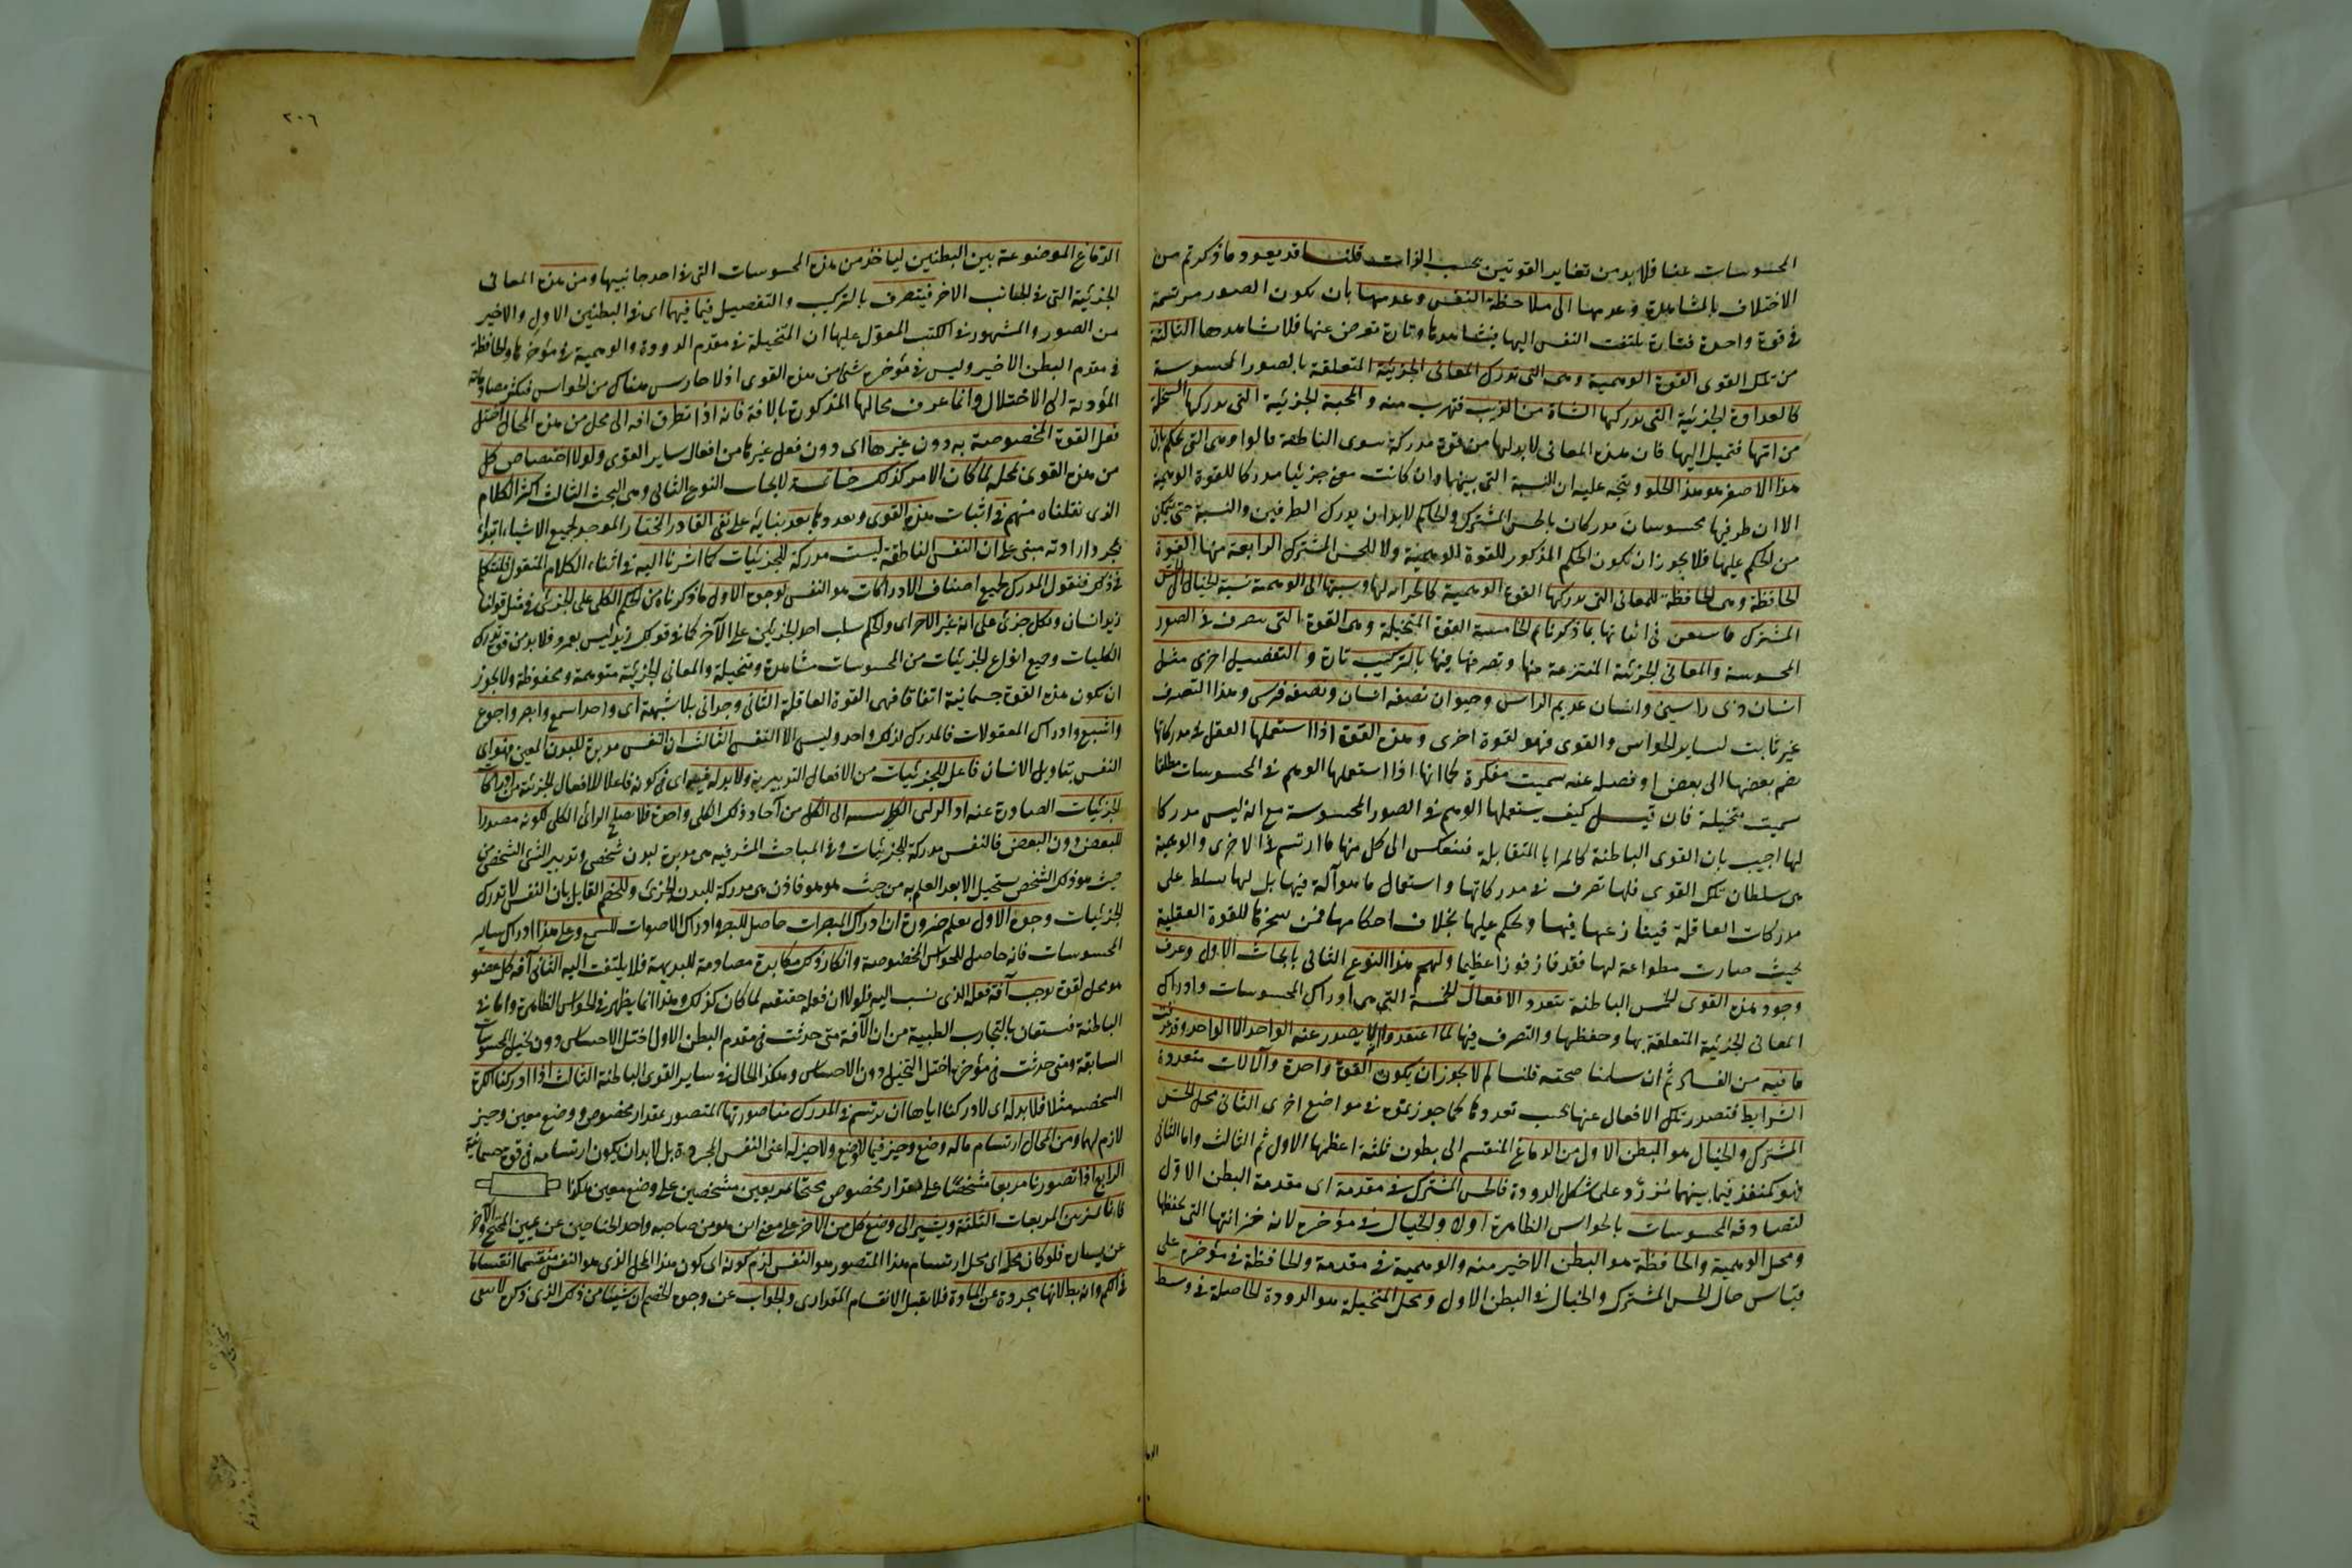 المحسوسات عنها فلا بد من تغاير القوتين بحسب الذات قلنا قد يعود ما ذكرتم من
الاختلاف بالمشاهدة وعدمها الى ملاحظة النفس وعدمها بان يكون الصور مرتسمة
في قوة واحدة فتارة يلتفت النفس اليها فيشاهدها وتارة تعرض عنها فلا تشاهدها الثالثة
من تلك القوى القوة الوهمية وهى التى تدرك المعانى الجزئية المتعلقة بالصور المحسوسة
كالعداوة الجزئية التى تدركها الشاة من الذيب فتهرب منه والمحبة الجزئية التى تدركها السخلة
من امها فتميل اليها فان هذه المعانى لا بد لها من قوة مدركة سوى الناطقة قالوا وهى التى تحكم بان
هذا الاصفر هو هذا الحلو ويتجه عليه ان النسبة التى بينهما وان كانت معنى جزئيا مدركا للقوة الوهمية
الا ان طرفيها محسوسان مدركان بالحس المشترك والحاكم لا بد ان يدرك الطرفين والنسبة حتى يتمكن
من الحكم عليهما فلا يجوز ان يكون الحكم المذكور للقوة الوهمية ولا للحس المشترك الرابعة منها القوة
الحافظة وهى الحافظة للمعانى التى يدركها القوة الوهمية كالخزانة لها ونسبتها الى الوهمية نسبة الخيال الى الحس
المشترك فاستعن فى اثباتها بما ذكرناه ثم الخامسة القوة المتخيلة وهى القوة التى تتصرف فى الصور
المحسوسة والمعانى الجزئية المنتزعة منها وتصرفها فيها بالتركيب تارة والتفصيل اخرى مثل
انسان ذى راسين وانسان عديم الراس وحيوان نصفه انسان ونصفه فرس وهذا التصرف
غير ثابت لساير الحواس والقوى فهو لقوة اخرى وهذه القوة اذا استعملها العقل فى مدركاتها
بضم بعضها الى بعض او فصله عنه سميت مفكرة كما انها اذا استعملها الوهم فى المحسوسات مطلقا
سميت متخيلة فان قيل كيف يستعملها الوهم فى الصور المحسوسة مع انه ليس مدركا
لها اجيب بان القوى الباطنة كالمرايا المتقابلة فينعكس الى كل منها ما ارتسم فى الاخرى والوهمية
هى سلطان تلك القوى فلها تصرف فى مدركاتها واستعمال ما هو آلة فيها بل لها تسلط على
مدركات العاقلة فينازعها فيها ويحكم عليها بخلاف احكامها فمن سخرها للقوة العقلية
بحيث صارت مطواعة لها فقد فاز فوزا عظيما ولهم هذا النوع الثانى بابحاث الاول وعرف
وجود هذه القوى الخمس الباطنة بتعدد الافعال الخمسة التى هى ادراك المحسوسات وادراك
المعانى الجزئية المتعلقة بها وحفظها والتصرف فيها لما اعتقدوا ان لا يصدر عنه الواحد الا الواحد وقد عرفت
ما فيه من الفساد ثم ان سلمنا صحته قلنا لم لا يجوز ان يكون القوة واحدة والآلات متعددة
الشرايط فتصدر تلك الافعال عنها بحسب تعددها كما جوزتموه فى مواضع اخرى الثانى محل الحس
المشترك والخيال هو البطن الاول من الدماغ المنقسم الى بطون ثلثة اعظمها الاول ثم الثالث واما الثانى
فهو كمنفذ فيما بينهما مُزَرَّد على شكل الدودة فالحس المشترك فى مقدمه اى مقدمة البطن الاول
لتصادفه المحسوسات بالحواس الظاهرة اولا والخيال فى مؤخره لانه خزانتها التى يحفظها
ومحل الوهمية والحافظة هو البطن الاخير منه والوهمية فى مقدمة والحافظة فى مؤخره على
قياس حال الحس المشترك والخيال فى البطن الاول ومحل المتخيلة هو الدودة الحاصلة فى وسط
٢٠٦
الدماغ الموضوعة بين البطنين لياخذ من هذه المحسوسات التى فى احد جانبيها ومن هذه المعانى
الجزئية التى فى الجانب الاخر فيتصرف بالتركيب والتفصيل فيما فيهما اى فى البطنين الاول والاخير
من الصور والمشهور فى الكتب المعول عليها ان المتخيلة فى مقدم الدودة والوهمية فى مؤخرها والحافظة
فى مقدم البطن الاخير وليس فى مؤخره شئ من هذه القوى اذ لا حارس هناك من الحواس فيكثر مصادماته
المؤدية الى الاختلال وانما عرف محالها المذكورة بالافة فانه اذا تطرق افة الى محل من هذه المحال اختل
فعل القوة المخصوصة به دون غيرها اى دون فعل غيرها من افعال ساير القوى ولولا اختصاص كل
من هذه القوى بمحله لما كان الامر كذلك خاتمة لابحاث النوع الثانى وهى البحث الثالث اكثر الكلام
الذى نقلناه منهم فى اثبات هذه القوى وتعددها بعد بنايه على نفى القادر المختار الموجد لجميع الاشياء ابتداء
بمجرد ارادته مبنى على ان النفس الناطقة ليست مدركة للجزئيات كما اشرنا اليه فى اثناء الكلام المنقول فلنتكلم
فى ذلك فنقول المدرك لجميع اصناف الادراكات هو النفس لوجوه الاول ما ذكرناه من الحكم الكلى على الجزئى فى مثل قولنا
زيد انسان وبكل جزئى على انه غير الاخر اى والحكم سلب احد الجزئيين على الآخر كما فى قولك زيد ليس بعمرو فلا بد من قوة تدرك
الكليات وجميع انواع الجزئيات من المحسوسات مشاهدة ومتخيلة والمعانى الجزئية متوهمة ومحفوظة ولا يجوز
ان يكون هذه القوة جسمانية اتفاقا فهى القوة العاقلة الثانى وجدانى بلا شبهة اى واحد اسمع وابصر واجوع
واشبع وادراك المعقولات فالمدرك لذلك واحد وليس الا النفس الثالث ان النفس مدبرة للبدن المعين فهو اى
النفس بتاويل الانسان فاعل للجزئيات من الافعال التدبيرية ولا بد له فيه اى فى كونه فاعلا للافعال الجزئية من ادراك
الجزئيات الصادرة عنه اذ الراى الكلى نسبته الى الكل من آحاد ذلك الكلى واحدة فلا يصلح الرائ الكلى لكونه مصدرا
للبعض دون البعض فالنفس مدركة للجزئيات وفى المباحث المشرقية هى مدبرة لبدن شخصى وتدبير الشئ الشخصى من
حيث هو ذلك الشخص يستحيل الا بعد العلم به من حيث هو هو فاذن هى مدركة للبدن الجزئى وللخصم القايل بان النفس لا تدرك
الجزئيات وجوه الاول نعلم ضرورة ان ادراك المبصرات حاصل للبصر وادراك الاصوات للسمع وعلى هذا ادراك ساير
المحسوسات فانه حاصل للحواس المخصوصة وانكار ذلك مكابرة مصادمة للبديهة فلا يلتفت اليه الثانى آفة كل عضو
هو محل لقوة توجب آفة فعله الذى نسب اليه فلولا ان فعله حقيقة لما كان كذلك وهذا انما يظهر فى الحواس الظاهرة واما فى
الباطنة فيستعان بالتجارب الطبية من ان الآفة متى حدثت فى مقدم البطن الاول اختل الاحساس دون تخيل المحسوسات
السابقة ومتى حدثت فى مؤخره اختل التخيل دون الاحساس وهكذا الحال فى ساير القوى الباطنة الثالث اذا ادركنا الكرة
الشخصية مثلا فلا بد له اى لادراكنا اياها ان يرتسم فى المدرك منا صورتها المتصور بمقدار مخصوص ووضع معين وحيز
لازم لهما ومن المحال ارتسام ماله وضع وحيز فيما لا وضع ولا حيز له اعنى النفس المجردة بل لا بد ان يكون ارتسامه فى قوة جسمانية
الرابع اذا تصورنا مربعا مشخصا على مقدار مخصوص مجنحا بمربعين مشخصين على وضع معين هكذا
فانا نميز بين المربعات الثلثة ونشير الى وضع كل من الاخر على معنى اين هو من صاحبه واحد الجناحين عن يمين المجنح والآخر
عن يساره فلو كان محله اى محل ارتسام هذا المتصور هو النفس لزم كونه اى كون هذا المحل الذى هو النفس منقسما انقساما
فى الكم وانه بطلانها مجردة عن المادة فلا يقبل الانقسام المقدارى والجواب عن وجوه الخصم ان شيئا من ذلك الذى ذكره لا ينفى